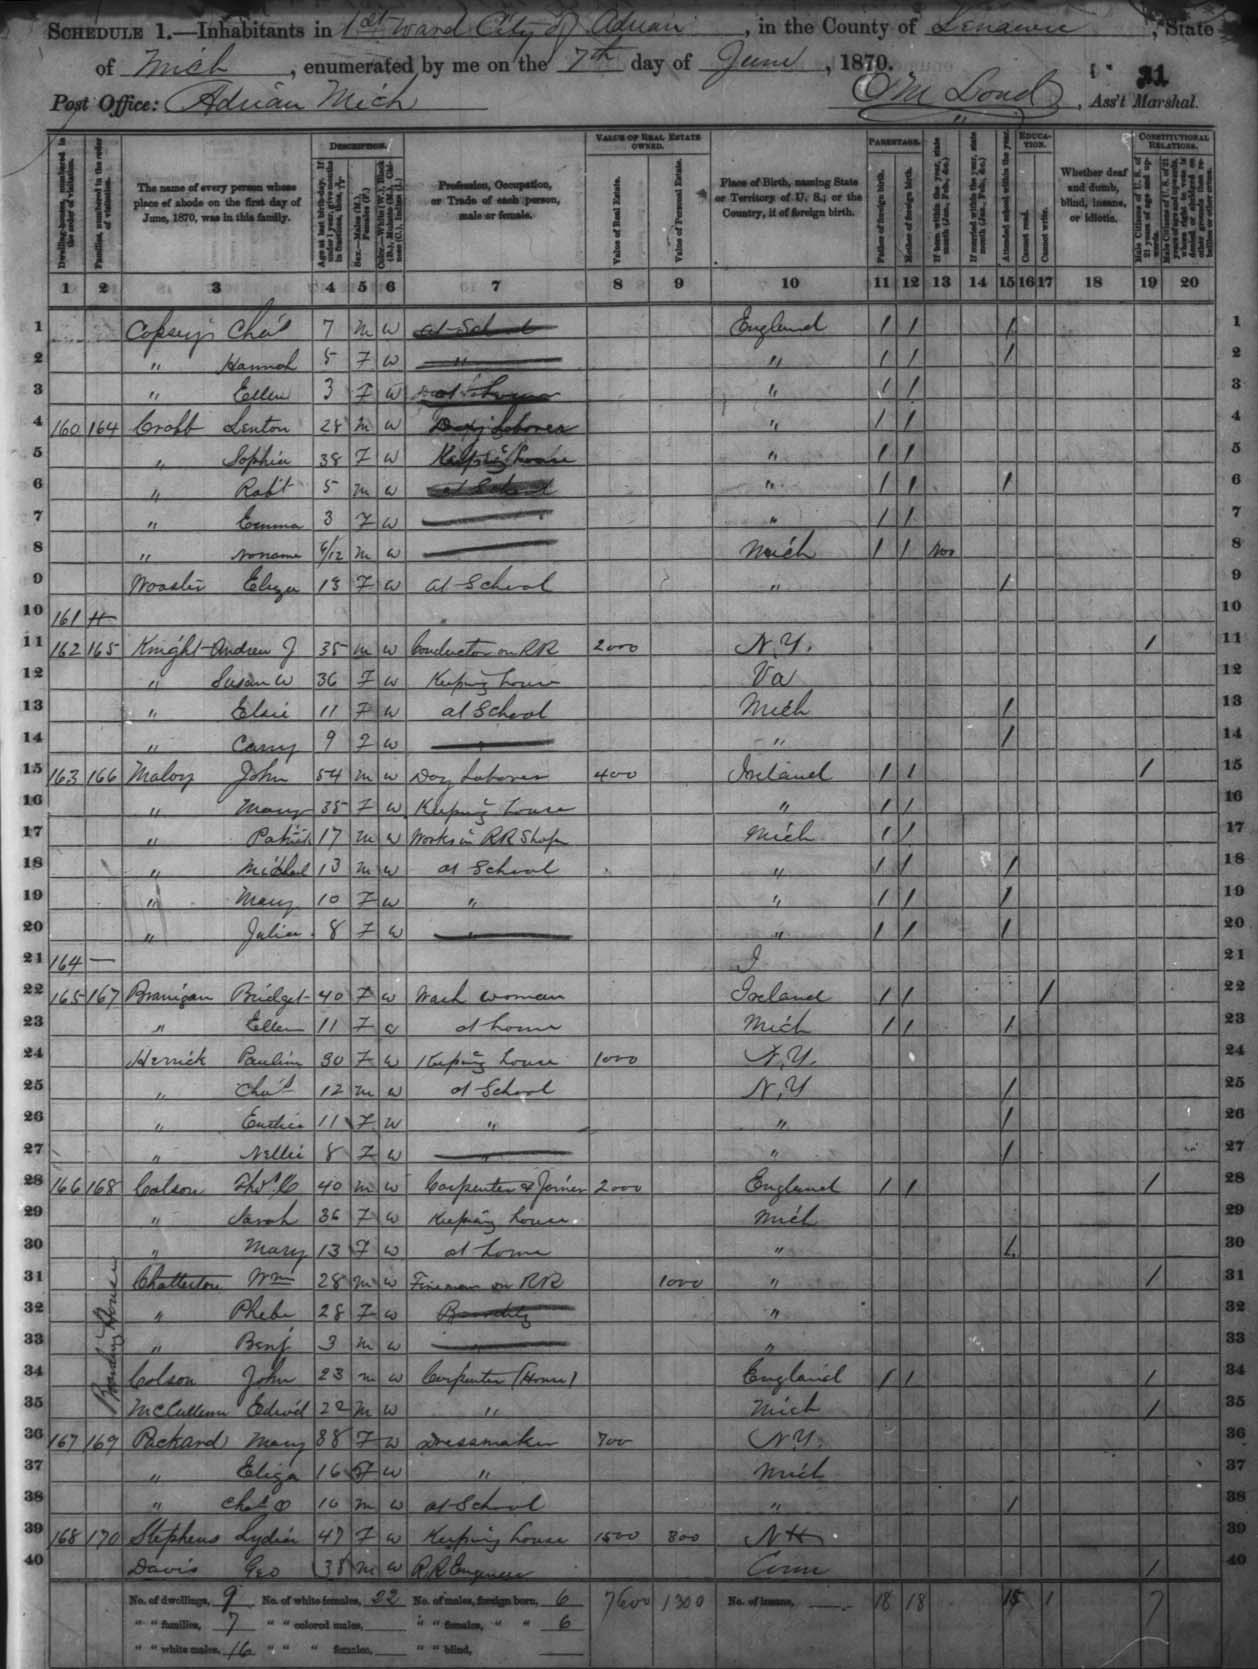 SCHEDULE 1.—Inhabitants in 1st Ward City of Adrian, in the County of Lenawee, State
of Mich, enumerated by me on the 7th day of June, 1870.
21
Post Office: Adrian Mich
O M Loud, Ass't Marshal.
Dwelling-houses, numbered in the order of visitation.
Families, numbered in the order of visitation.
The name of every person whose place of abode on the first day of June, 1870, was in this family.
DESCRIPTION.
Age at last birth-day. If under 1 year, give months in fractions, thus, 3/12
Sex.—Males (M.), Females (F.)
Color.—White (W.), Black (B.), Mulatto (M.), Chinese (C.), Indian (I.)
Profession, Occupation, or Trade of each person, male or female.
VALUE OF REAL ESTATE OWNED.
Value of Real Estate.
Value of Personal Estate.
Place of Birth, naming State or Territory of U. S.; or the Country, if of foreign birth.
PARENTAGE.
Father of foreign birth.
Mother of foreign birth.
If born within the year, state month (Jan., Feb., &c.)
If married within the year, state month (Jan., Feb., &c.)
Attended school within the year.
EDUCATION.
Cannot read.
Cannot write.
Whether deaf and dumb, blind, insane, or idiotic.
CONSTITUTIONAL RELATIONS.
Male Citizens of U. S. of 21 years of age and upwards.
Male Citizens of U. S. of 21 years of age and upwards, whose right to vote is denied or abridged on other grounds than rebellion or other crime.
1 2 3 4 5 6 7 8 9 10 11 12 13 14 15 16 17 18 19 20
1 Chas 7 M W at School England / / / 1
2 " Hannah 5 F W " " / / / 2
3 " Ellen 3 F W at home " / / 3
4 160 164 Croft Lenton 28 M W Day Laborer " / / 4
5 " Sophia 38 F W Keeping house " / / 5
6 " Robt 5 M W at School " / / / 6
7 " Emma 3 F W " / / 7
8 " No name 6/12 M W Mich / / Nov 8
9 Wooster Eliza 13 F W at School " / 9
10 161 10
11 162 165 Knight Andrew J 35 M W Conductor on RR 2000 N.Y. / 11
12 " Susan W 36 F W Keeping house Va 12
13 " Elsie 11 F W at School Mich / 13
14 " Carry 9 F W " " / 14
15 163 166 Maloy John 54 M W Day Laborer 400 Ireland / / / 15
16 " Mary 35 F W Keeping house " / / 16
17 " Patrick 17 M W Works in RR Shop Mich / / 17
18 " Michael 13 M W at School " / / / 18
19 " Mary 10 F W " " / / / 19
20 " Julia 8 F W " " / / / 20
21 164 — I 21
22 165 167 Branigan Bridget 40 F W Wash woman Ireland / / / 22
23 " Ellen 11 F W at home Mich / / / 23
24 Herrick Paulina 30 F W Keeping house 1000 N.Y. 24
25 " Chas 12 M W at School N.Y / 25
26 " 11 F W " " / 26
27 " Nellie 8 F W " " / 27
28 166 168 Colson 40 M W Carpenter & Joiner 2000 England / / / 28
29 " Sarah 36 F W Keeping house Mich 29
30 " Mary 13 F W at home " / 30
Boarding House
31 Chatterton Wm 28 M W Fireman on RR 1000 " / 31
32 " Phebe 28 F W Boarding " 32
33 " Benj 3 M W " " 33
34 Colson John 23 M W Carpenter (House) England / / / 34
35 Edwd 22 M W " Mich / 35
36 167 169 Packard Mary 38 F W Dressmaker 700 N.Y. 36
37 " Eliza 16 F W " Mich 37
38 " Chas O 10 M W at School " / 38
39 168 170 Stephens Lydia 47 F W Keeping house 1500 300 N H 39
40 Davis Geo 38 M W R R Engineer Conn / 40
No. of dwellings, 9 No. of white females, 22 No. of males, foreign born, 6 7600 1300 No. of insane, — 18 18 15 1 7
" " families, 7 " " colored males, " " females, " " 6
" " white males, 16 " " " females, " " blind,